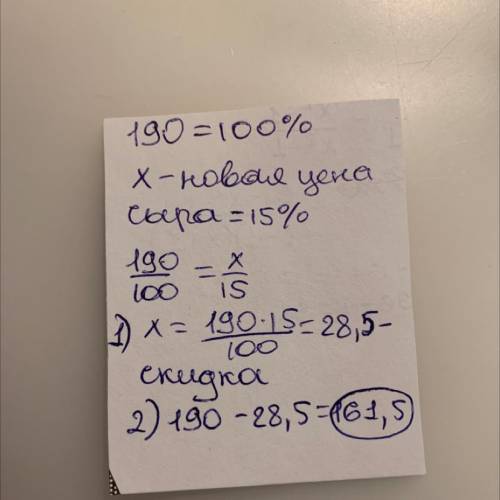 190 = 100%
х - новая цена
сыра = 15%
190/100 = х/15
1) х = 190·15/100 = 28,5 -
скидка
2) 190 - 28,5 = 161,5